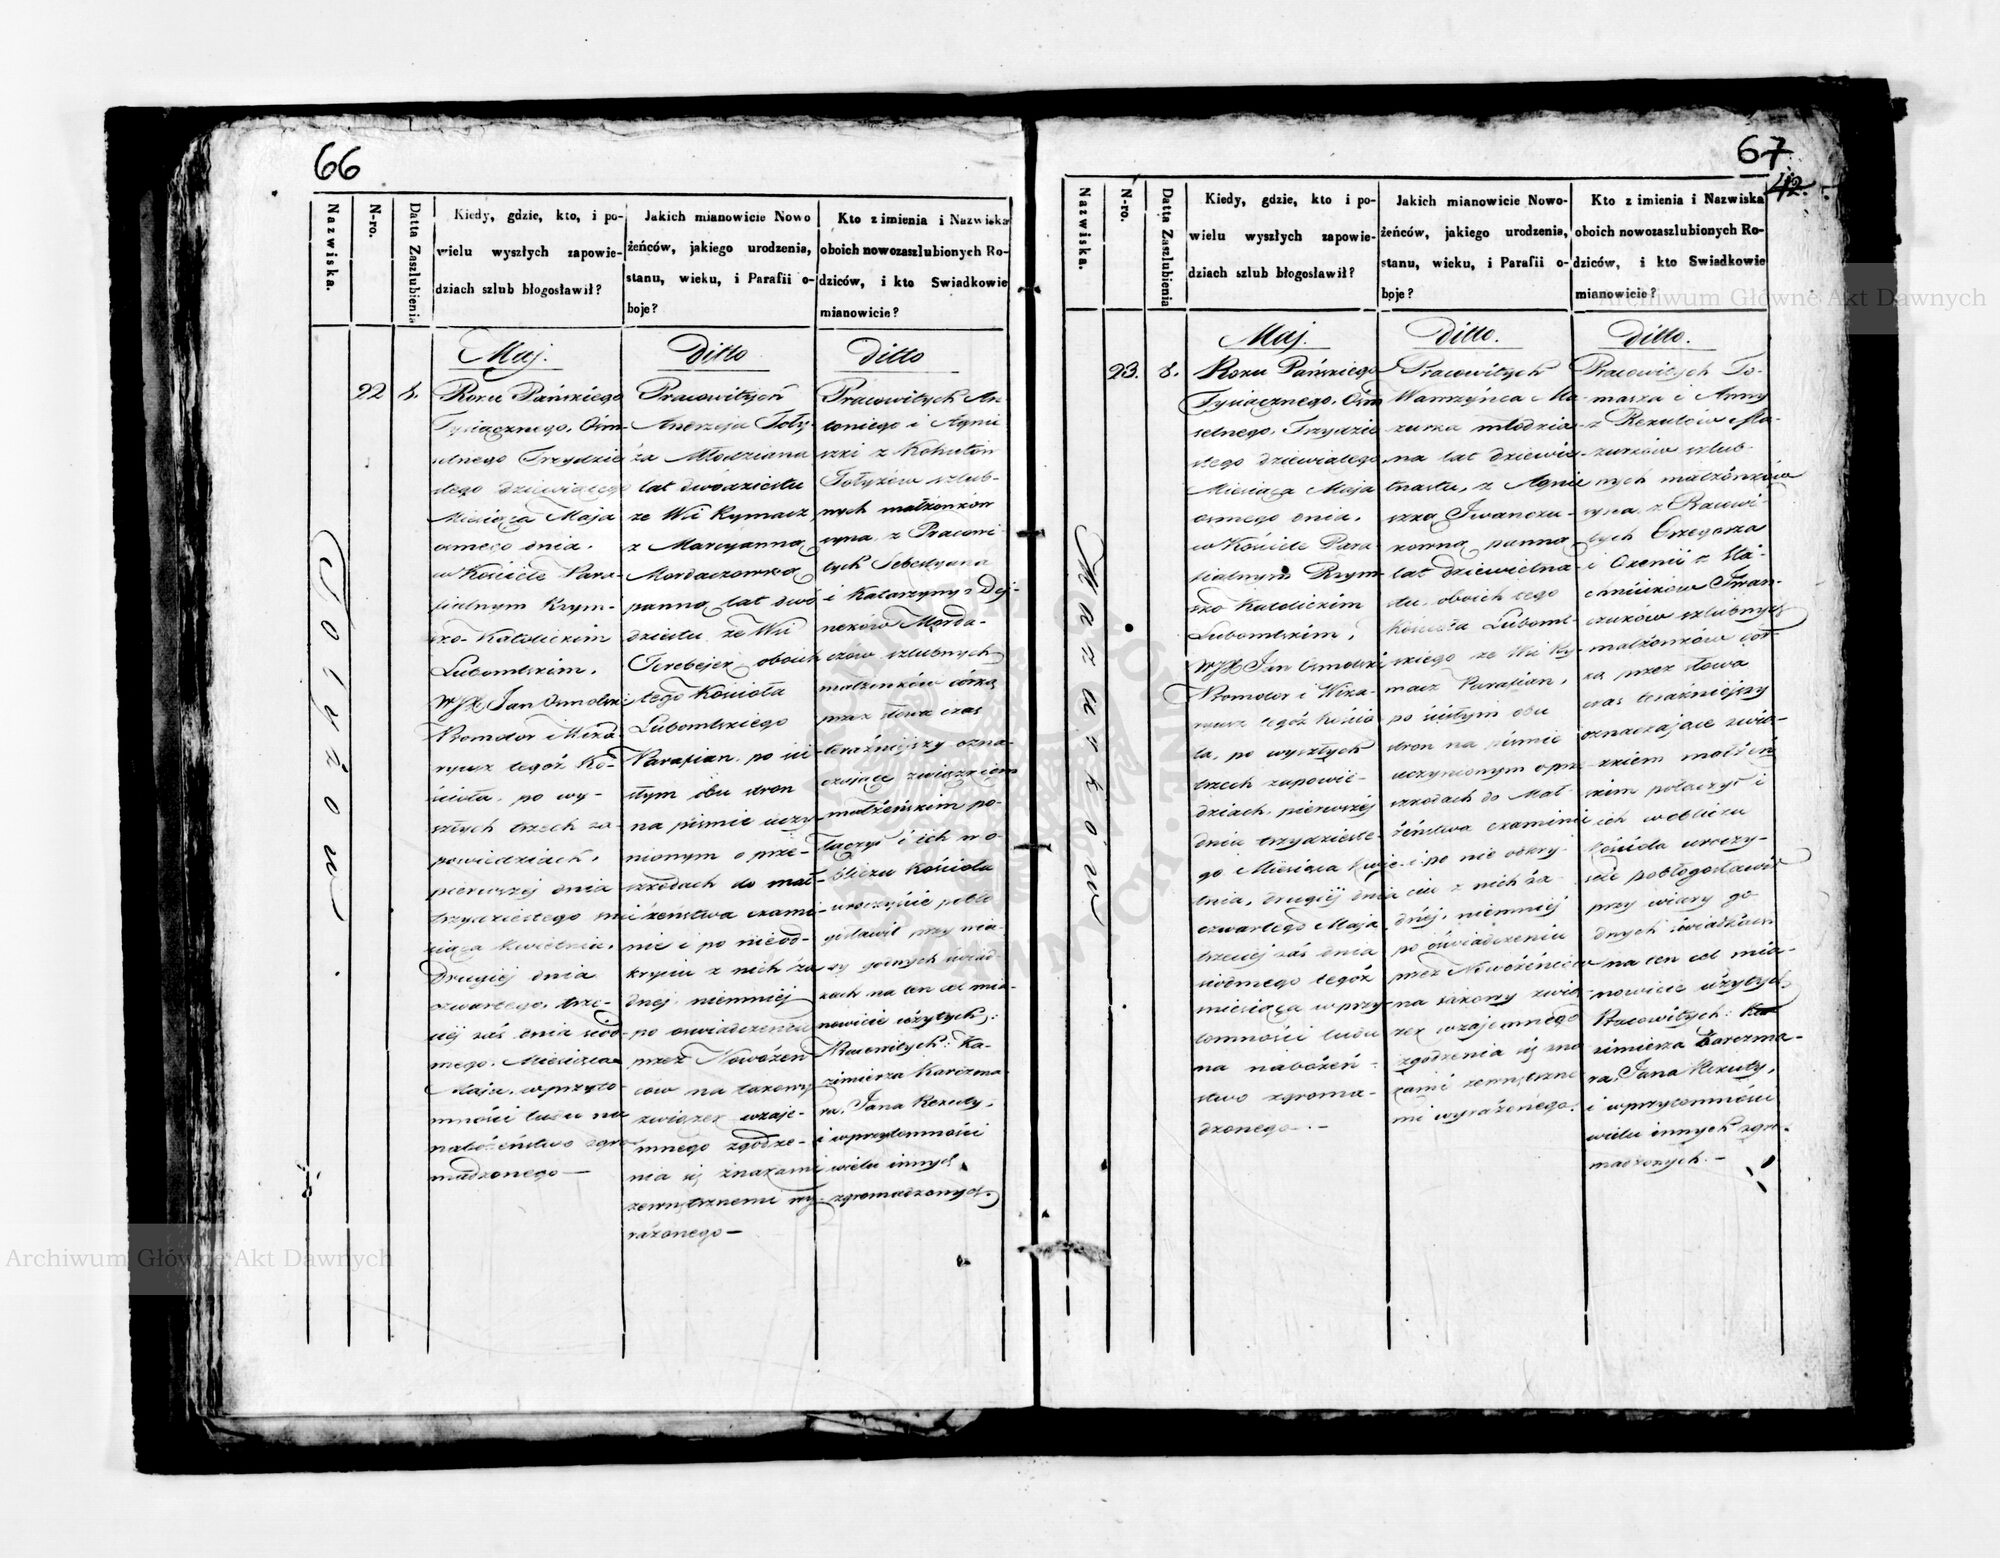 66
Nazwiska.
N-ro.
Datta Zaszlubienia
Kiedy, gdzie, kto, i po-
wielu wyszłych zapowie-
dziach szlub błogosławił?
Jakich mianowicie Nowo
żeńców, jakiego urodzenia,
stanu, wieku, i Parafii o-
boje?
Kto z imienia i Nazwiska
oboich nowozaszlubionych Ro-
dziców, i kto Swiadkowie
mianowicie?
Tołyżow
22
8.
Maj.
Roku Pańskiego
Tysiącznego, Ośm-
setnego Trzydzie
stego dziewiątego
Miesiąca Maja
osmego dnia.
w Kościele Para-
fialnym Rzym-
sko-Katolickim
Lubomlskim.
WJX Jan Osmolski
Promotor i Wika
ryusz tegóż Ko-
ścioła, po wy-
szłych trzech za-
powiedziach,
pierwszej dnia
trzydziestego mie
siąca Kwietnia,
Drugiej dnia
czwartego, trze-
ciej zaś dnia siod-
mego. Miesiąca
Maja, w przyto-
mności ludu na
nabożeństwo zgro
madzonego —
Ditto
Pracowitych
Andrzeja Toły-
ża Młodziana
lat dwódziestu
ze Wsi Rymacz
z Maryanną
Mordaczowną
panną lat dwó
dziestu ze Wsi
Terebejek oboich
tego Kościoła
Lubomlskiego
Parafian, po ści
słym obu stron
na piśmie uczy
nionym o prze-
szkodach do mał-
żeństwa exami-
nie i po nieod-
kryciu z nich ża
dnej, niemniej
po oswiadczeniu
przez Nowożeń
ców na takowy
związek wzaje-
mnego zgodze-
nia się znakami
zewnętrznemi wy-
rażonego —
Ditto
Pracowitych An
toniego i Agnie
szki z Kohutów
Tołyżów szlub-
nych małżonków
syna, z Pracowi
tych Sebestyana
i Katarzyny z Dej-
neków Morda-
czów szlubnych
małżonków córką
przez słowa czas
teraźniejszy ozna-
czające związkiem
małżeńskim po-
łączył i ich w o-
bliczu Kościoła
uroczyście pobło
gosławił przy wia-
ry godnych świad-
kach na ten cel mia-
nowicie użytych:
Pracowitych: Ka-
zimierza Karczma-
ra, Jana Rekuty,
i w przytomności
wielu innych
zgromadzonych.
67
42.
Nazwiska.
N-ro.
Datta Zaszlubienia
Kiedy, gdzie, kto i po-
wielu wyszłych zapowie-
dziach szlub błogosławił?
Jakich mianowicie Nowo-
żeńców, jakiego urodzenia,
stanu, wieku, i Parafii o-
boje?
Kto z imienia i Nazwiska
oboich nowozaszlubionych Ro-
dziców, i kto Swiadkowie
mianowicie?
Mazurków
23.
8.
Maj.
Roku Pańskiego
Tysiącznego, Ośm
setnego, Trzydzie
stego dziewiątego
Miesiąca Maja
osmego dnia,
w Kościele Para-
fialnym Rzym-
sko Katolickim
Lubomlskim,
WJX Jan Osmolski
Promotor i Wika-
ryusz tegóż Kościo
ła, po wyszłych
trzech zapowie-
dziach, pierwszej
dnia trzydzieste-
go Miesiąca Kwie-
tnia, drugiej dnia
czwartego Maja
trzeciej zaś dnia
siódmego tegóż
miesiąca w przy-
tomności ludu
na nabożeń-
stwo zgroma-
dzonego. —
Ditto.
Pracowitych
Wawrzyńca Ma-
zurka młodzia-
na lat dziewię
tnastu, z Agnie
szką Iwanczu-
kowną panną
lat dziewietna
stu, oboich tego
Kościoła Luboml-
skiego ze Wsi Ry-
macz Parafian,
po ścisłym obu
stron na piśmie
uczynionym o prze
szkodach do Mał-
żeństwa examinie
i po nie odkry-
ciu z nich ża-
dnéj, niemniej
po oświadczeniu
przez Nowożeńców
na takowy zwią-
zek wzajemnego
zgodzenia się zna
kami zewnętrzne
mi wyrażonego.
Ditto.
Pracowitych To-
masza i Anny
z Rekutów Ma-
zurków szlub-
nych małżonków
syna, z Pracowi-
tych Grzegorza
i Oxenii z
Iwan-
czuków szlubnych
małżonków cór-
ką przez słowa
czas teraźniejszy
oznaczające zwią-
zkiem małżeń
skim połączył i
ich w obliczu
Kościoła uroczy-
ście pobłogosławił
przy wiary go
dnych świadkach
na ten cel mia-
nowicie użytych
Pracowitych: Ka
zimierza Karczma-
ra, Jana Rekuty,
i w przytomności
wielu innych zgro-
madzonych. —
Archiwum Główne Akt Dawnych
Archiwum Główne Akt Dawnych